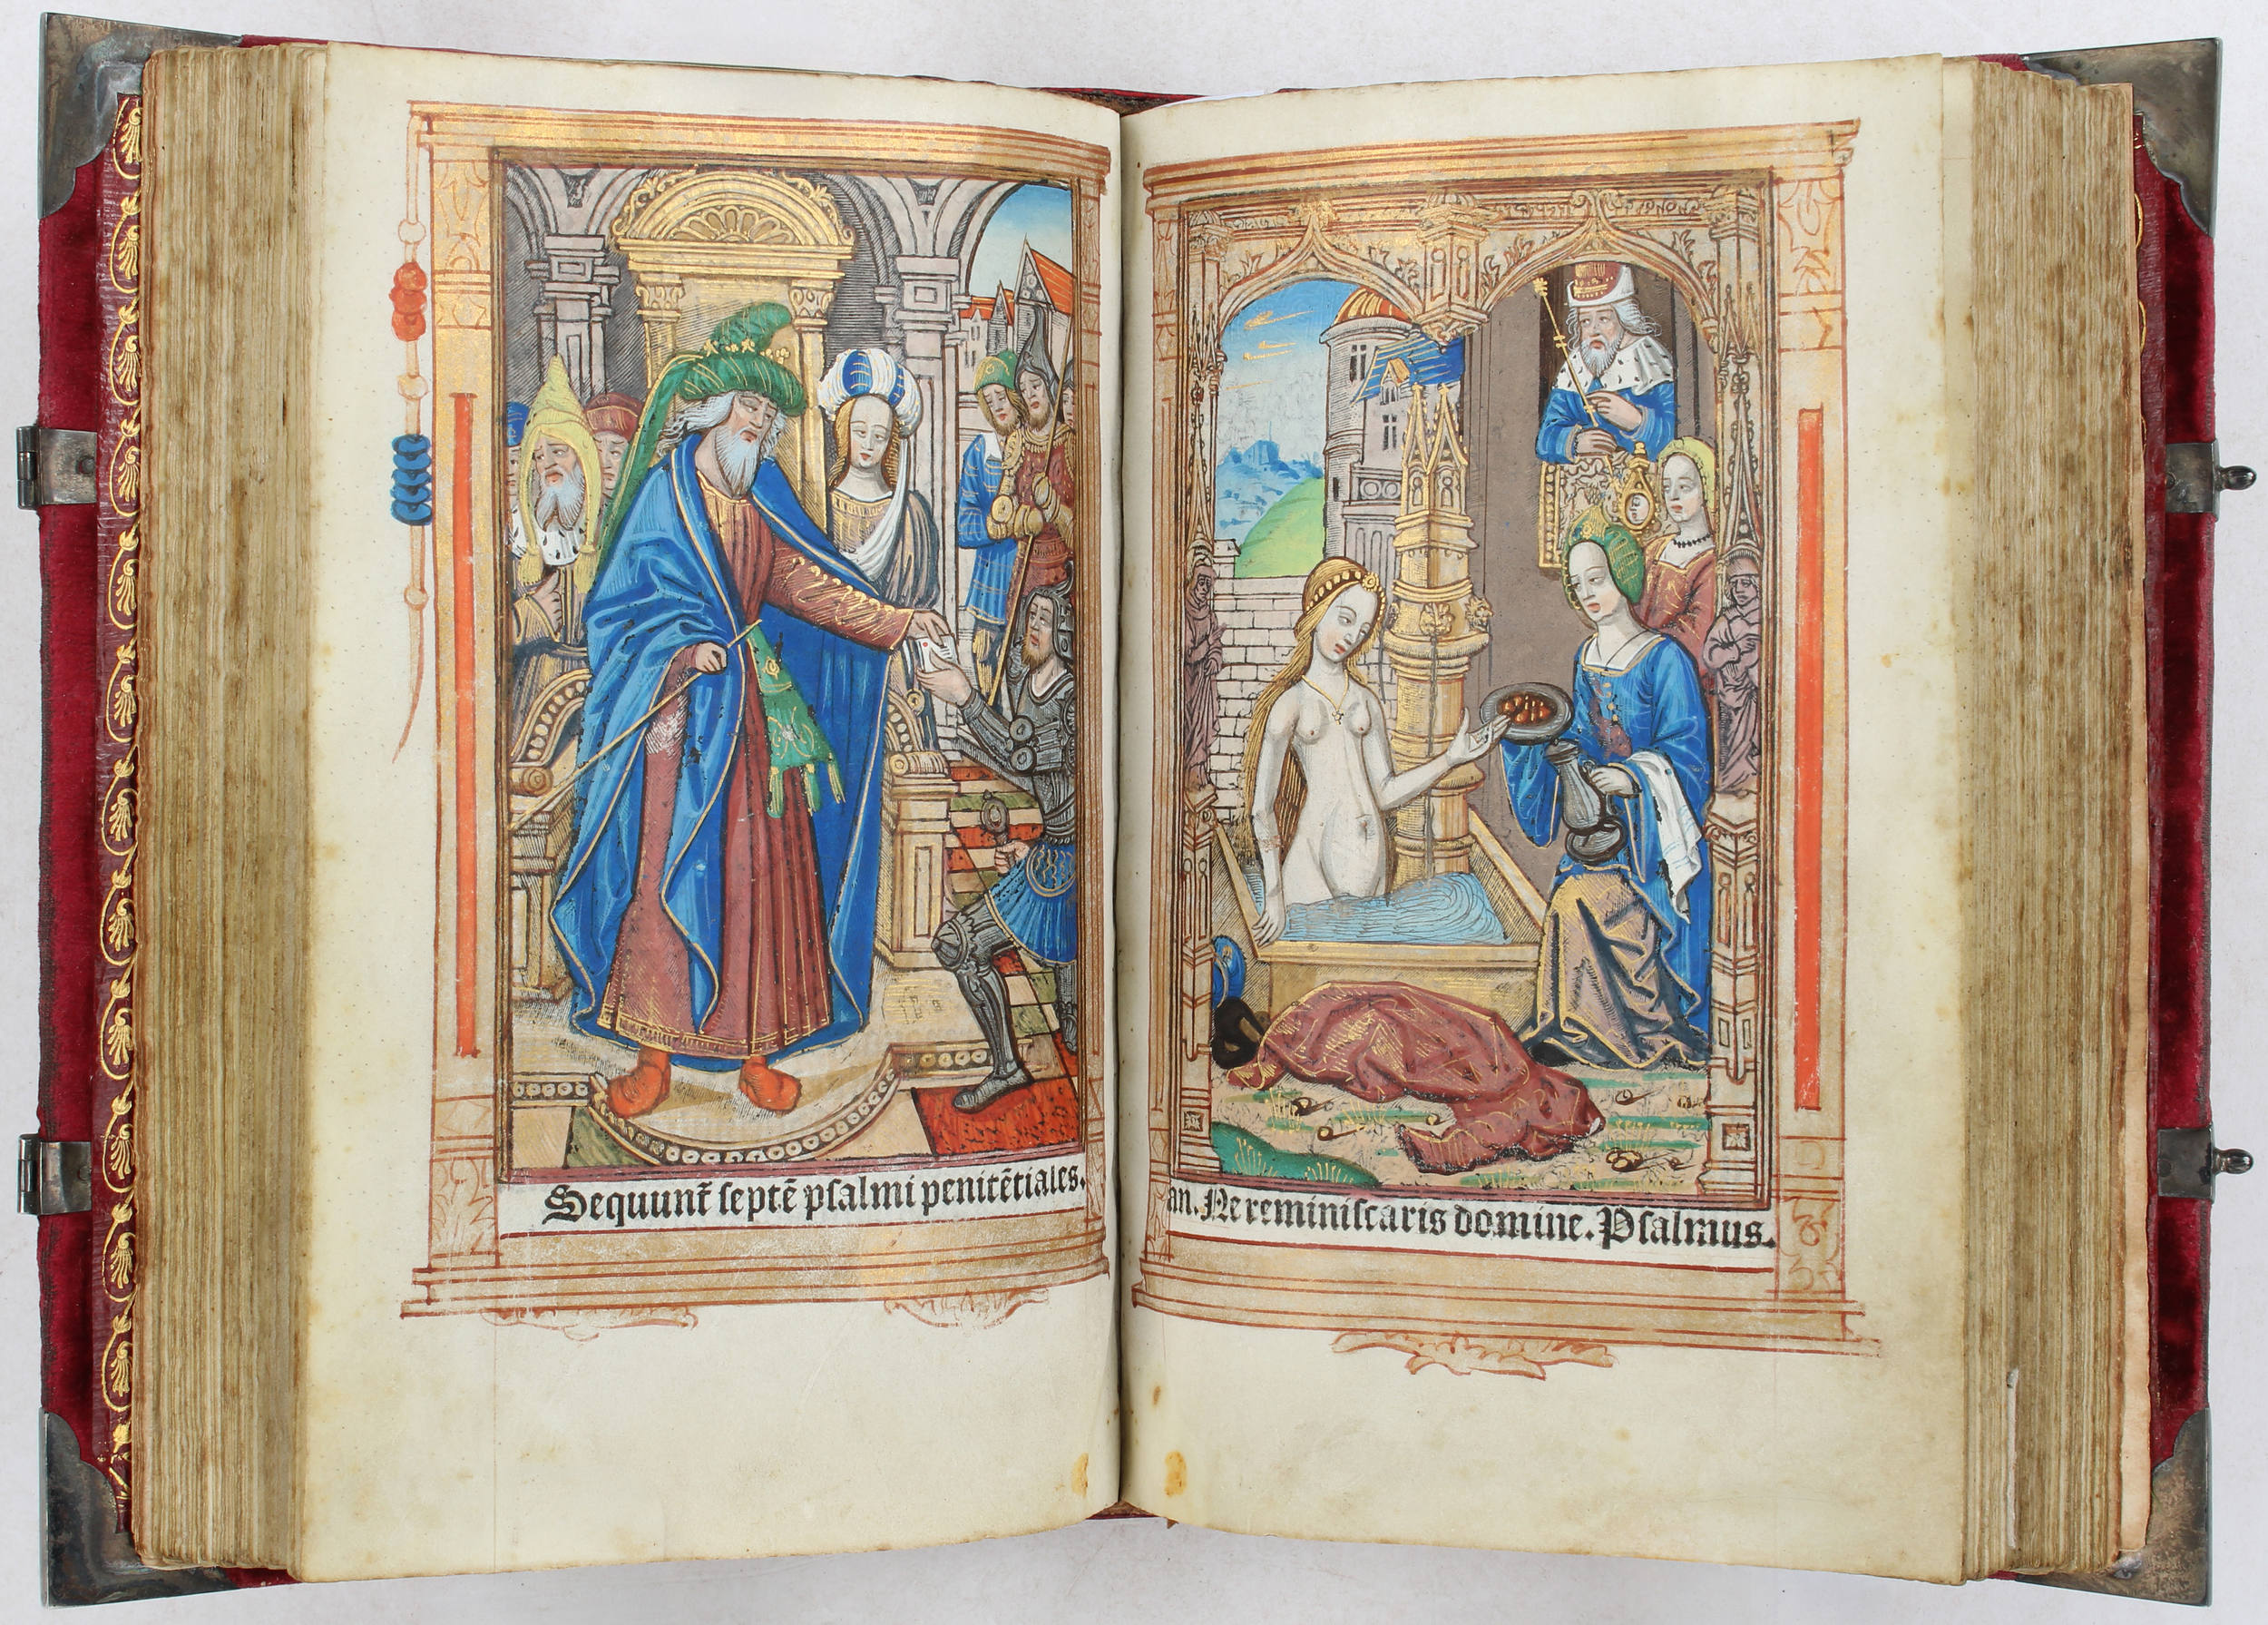 Sequunt̃ septẽ psalmi penitẽtiales.
an. Ne reminiscaris domine. Psalmus.